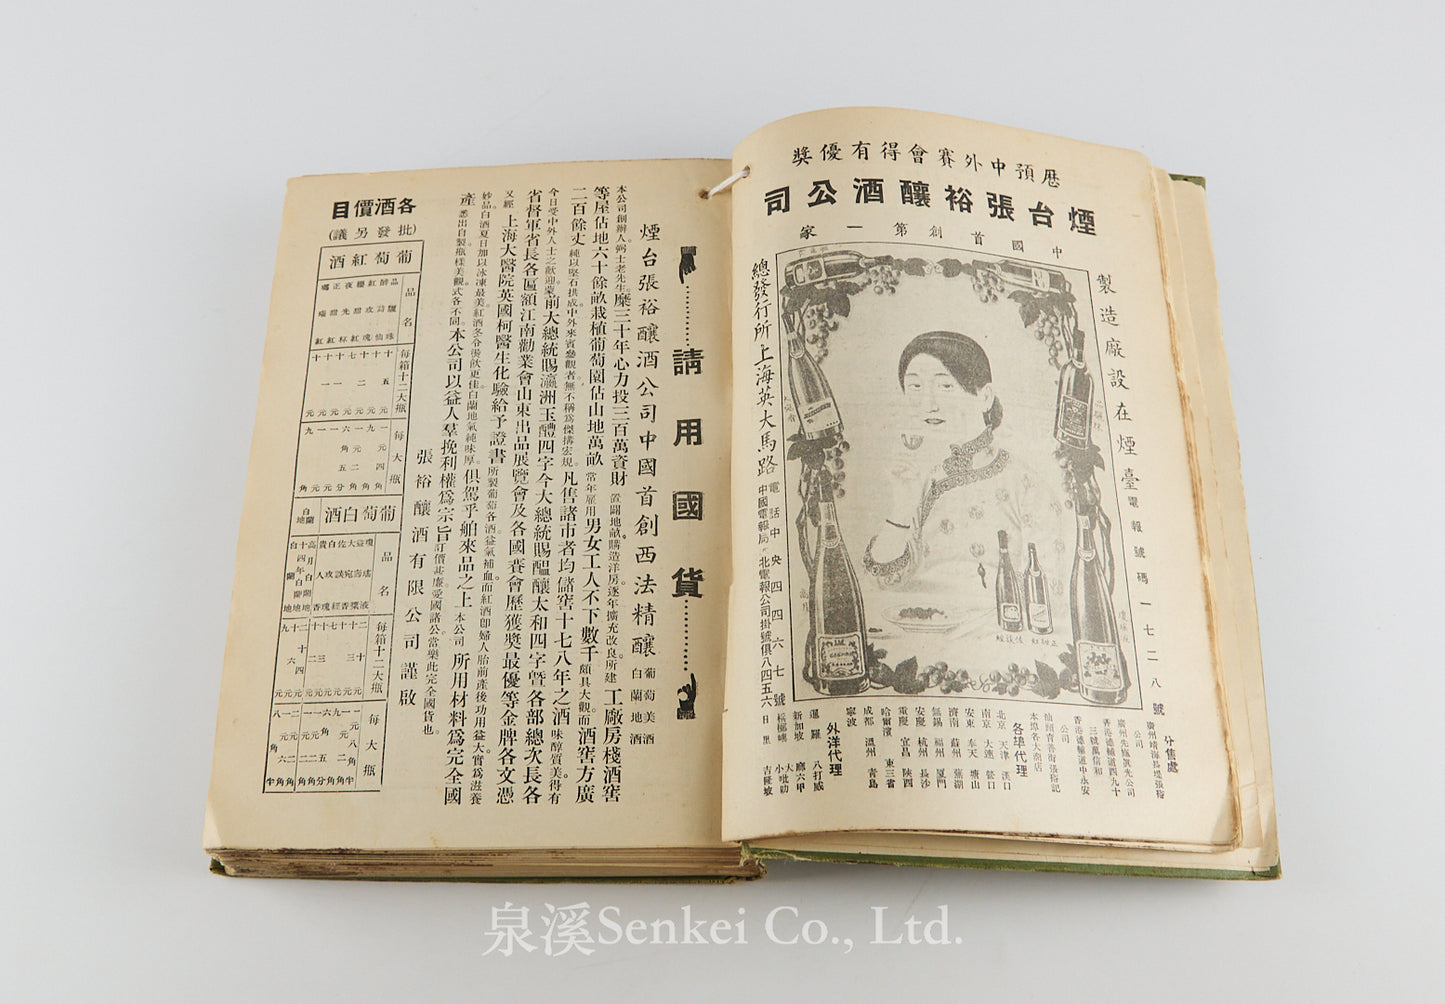 歴預中外賽會得有優獎
煙台張裕釀酒公司
中國首創第一家
製造廠設在煙臺 電報號碼一七二八號
總發行所上海英大馬路
電話中央四四六七號
中國電報局
北電報公司掛號俱八四五六
正甜紅
分售處
廣州靖海長堤張裕公司
廣州先施眞光公司
香港德輔道四九十三號萬信和
香港德輔道中永安公司
汕頭育善街張裕記
本埠各大商店
各埠代理
北京 天津 漢口
南京 大連 營口
安東 奉天 塘山
濟南 蘇州 蕪湖
無錫 福州 厦門
安慶 杭州 長沙
重慶 宜昌 陝西
哈爾濱 東三省
成都 溫州 青島
寧波
外洋代理
暹羅 八打威
新加坡 廖六甲
檳榔嶼 大小吡叻
日里 吉隆坡
請用國貨
煙台張裕釀酒公司中國首創西法精釀 葡萄美酒 白蘭地酒
本公司創辦人弼士老先生糜三十年心力投三百萬資財 置闢地畝購造洋房逐年擴充改良所建 工廠房棧酒窖
等屋佔地六十餘畝栽植葡萄園佔山地萬畝 常年雇用 男女工人不下數千 頗具大觀 而酒窖方廣
二百餘丈 純以堅石拱成中外來賓參觀者無不稱爲傑搆宏規 凡售諸市者均儲窖十七八年之酒 味醇質美得有
今日受中外人士之歡迎蒙 前大總統賜瀛洲玉醴四字今大總統賜醖釀太和四字曁各部總次長各
省督軍省長各區額江南勸業會山東出品展覽會及各國賽會歷獲獎最優等金牌各文憑
又經 上海大醫院英國柯醫生化驗給予證書 所製葡萄各酒益氣補血而紅酒卽婦人胎前產後功用益大實爲滋養
妙品白酒夏日加以冰凍最美紅酒冬令湯飲更佳白蘭地氣純味厚 俱駕乎舶來品之上 本公司 所用材料爲完全國
產 悉出自製瓶樣美觀式各不同 本公司以益人羣挽利權爲宗旨 訂價甚廉愛國諸公當樂此完全國貨也
張裕釀酒有限公司謹啟
各酒價目
(批發另議)
葡萄紅酒
品名
每箱十二大瓶
每大瓶
葡萄白酒 白蘭地
品名
每箱十二大瓶
每大瓶
泉溪Senkei Co., Ltd.